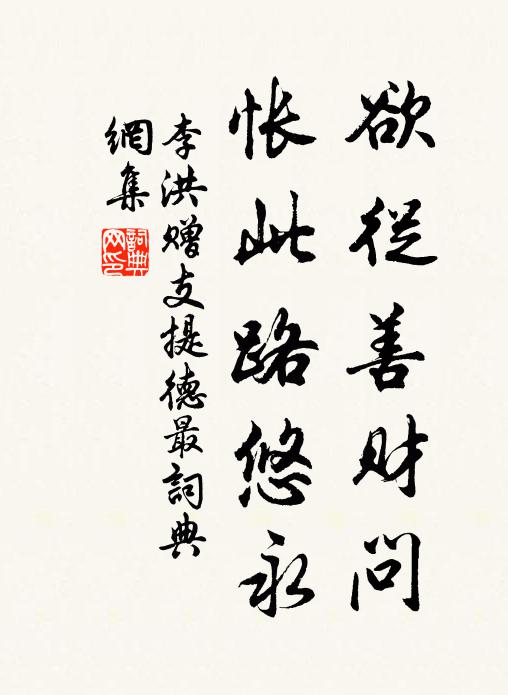 欲從善财问
悵此路悠永
李洪赠支提德最詞典
網集
詞典网印